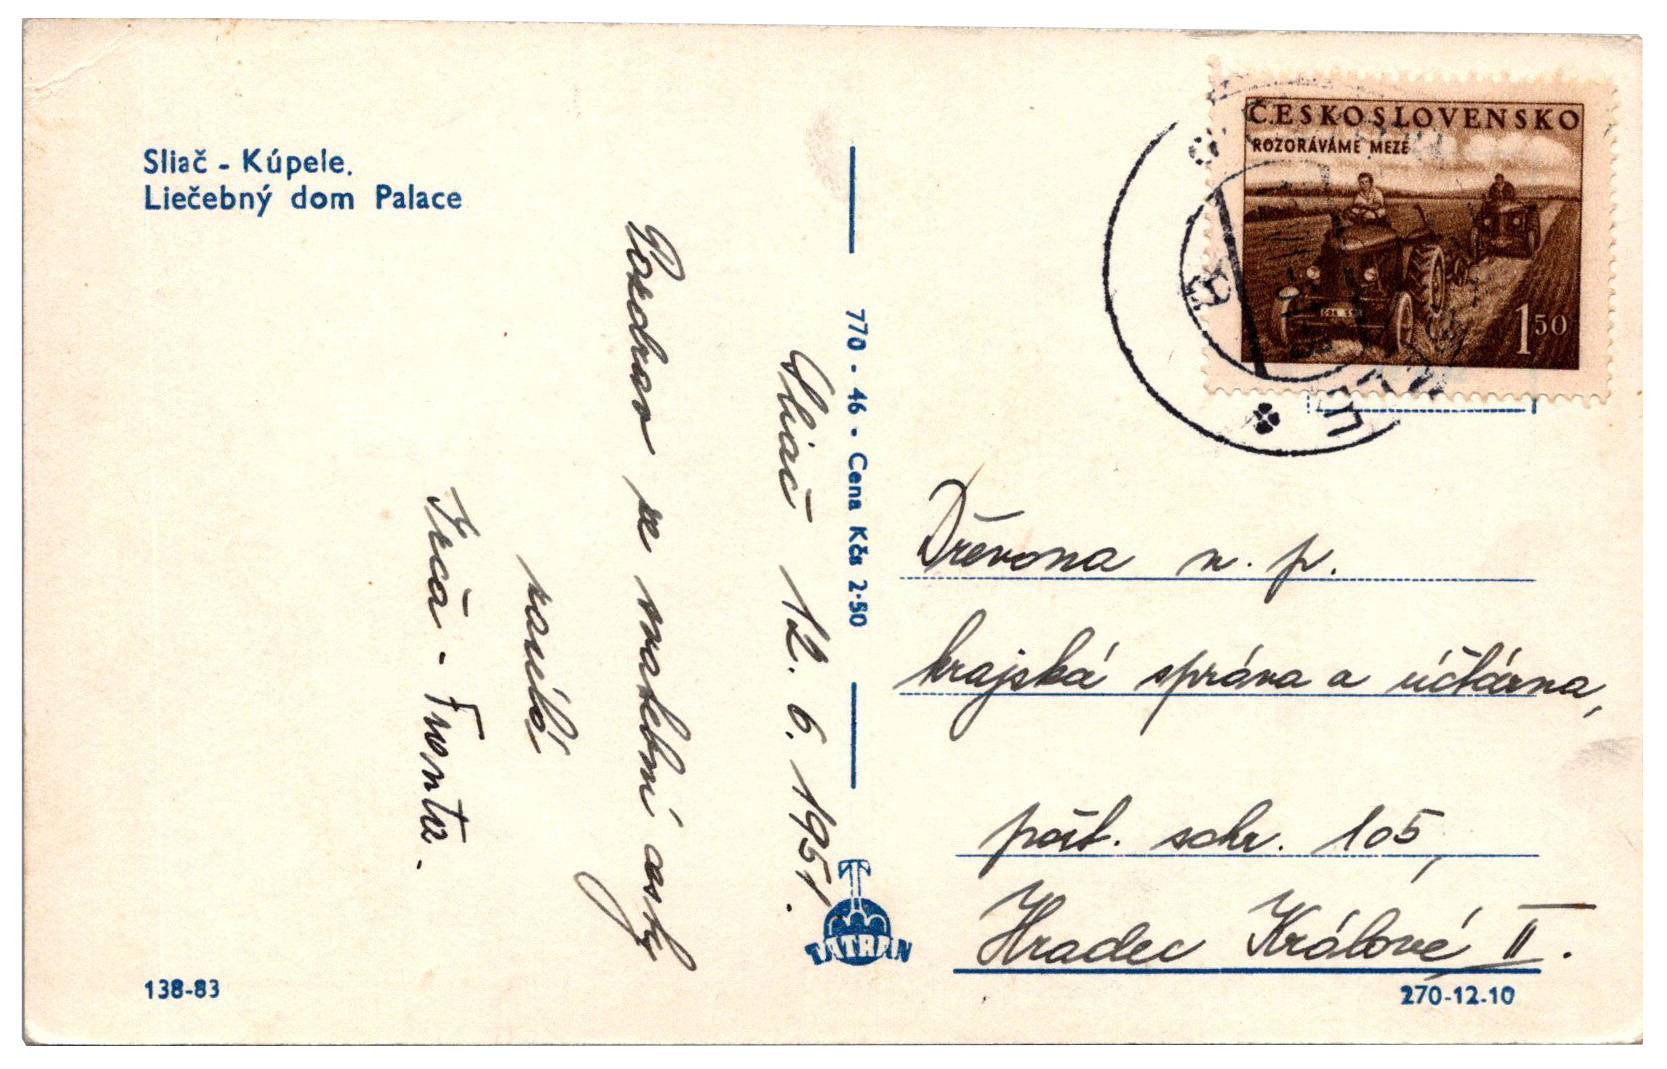 Sliač - Kúpele.
Liečebný dom Palace
Sliač 12. 6. 1951.
Pozdrav ze svatební cesty
zasílá
Fronta.
138-83
770 - 46 - Cena Kčs 2·50
TATRAN
ČESKOSLOVENSKO
ROZORÁVÁME MEZE
150
Dřevona n. p.
krajská správa a účtárna,
pošt. schr. 105,
Hradec Králové II.
270-12-10